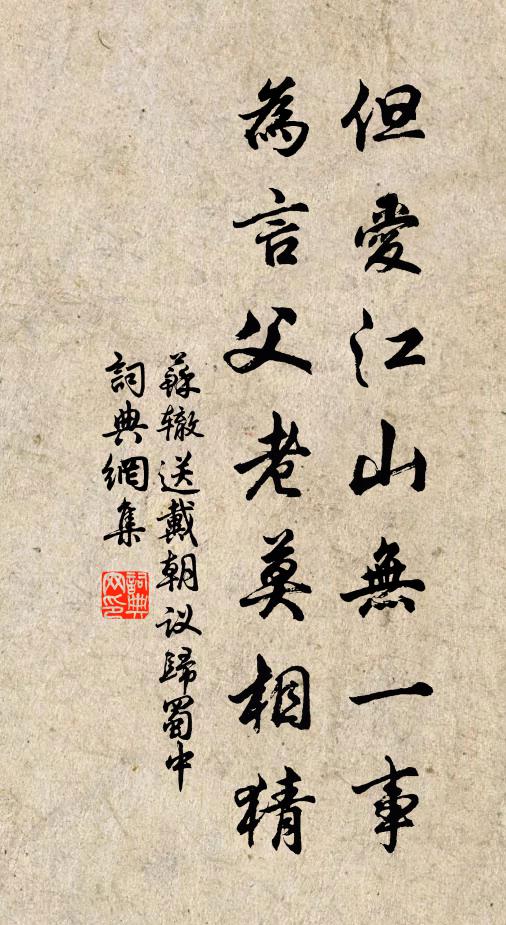 但愛江山無一事
為言父老莫相猜
蘇辙送戴朝议歸蜀中
詞典網集
詞典网印